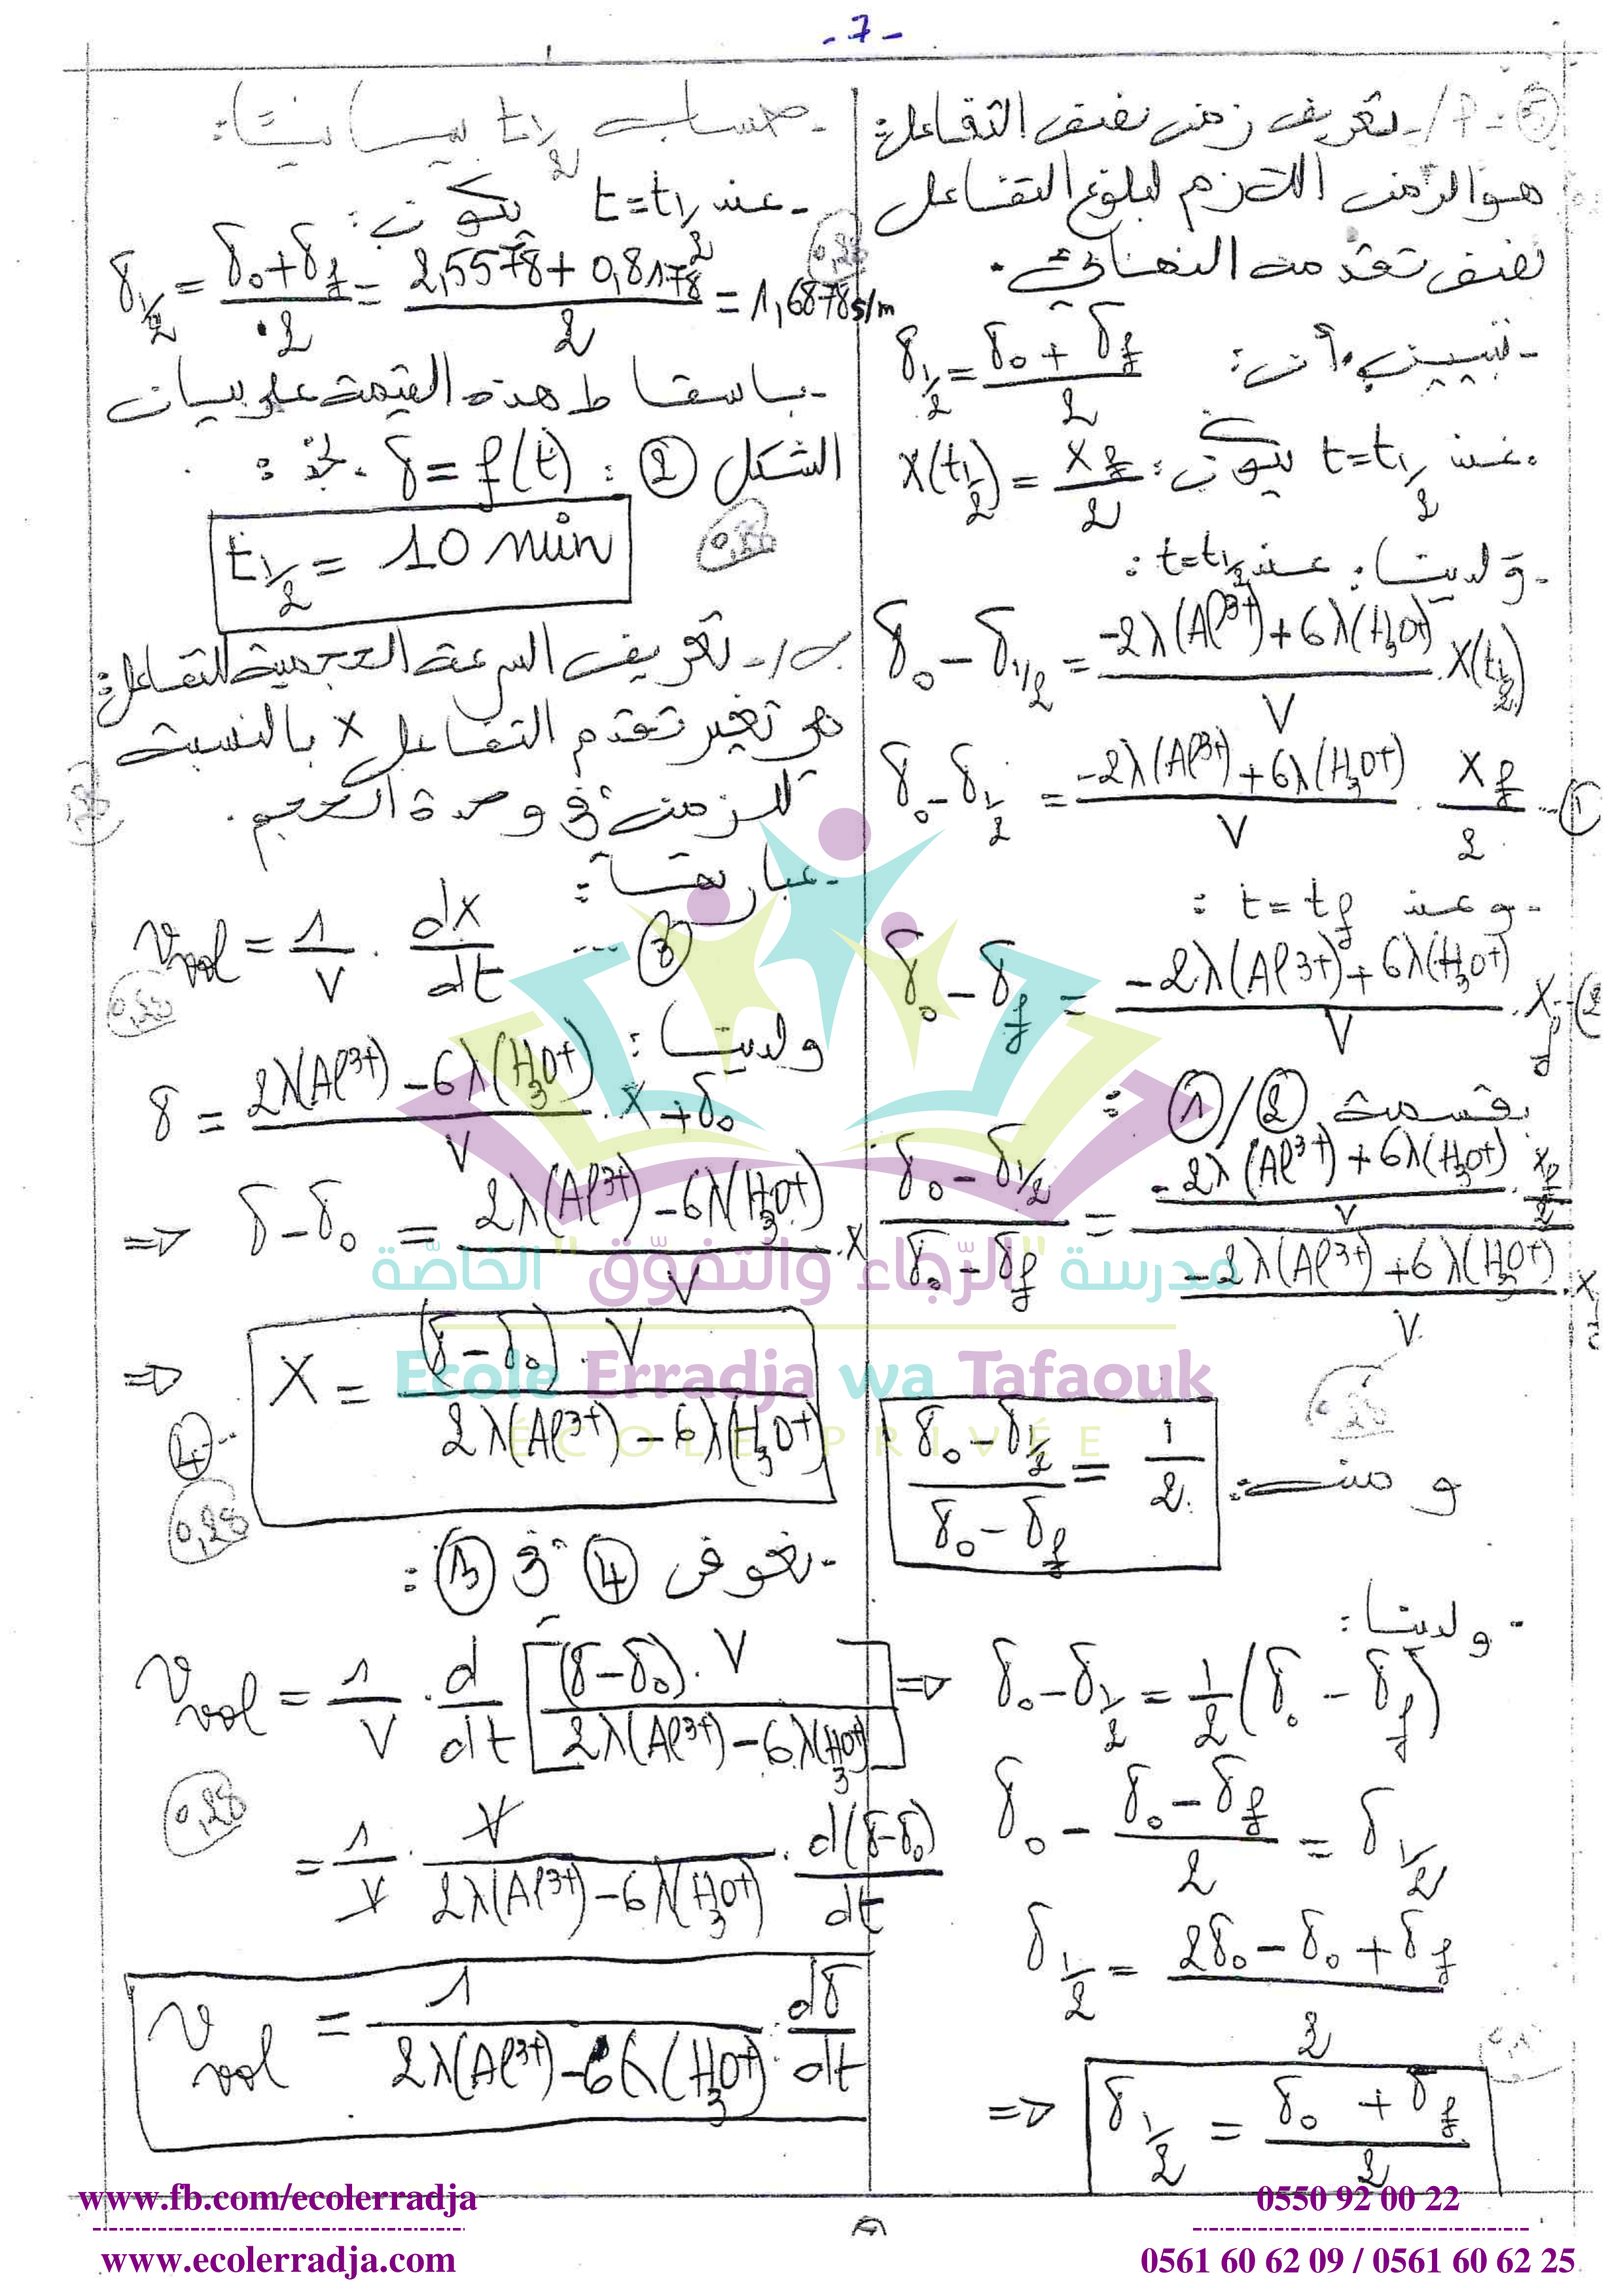 - 7 -
⑤- أ/- تعريف زمن نصف التفاعل:
هو الزمن اللازم لبلوغ التفاعل
نصف تقدمه النهائي.
- تبيين أن: σ½ = (σ₀ + σf)/2
عند t = t½ يكون: x(t½) = xf/2
- و لدينا: عند t = t½ :
σ₀ - σ½ = (-2λ(Al³⁺) + 6λ(H₃O⁺))/V . x(t½)
σ₀ - σ½ = (-2λ(Al³⁺) + 6λ(H₃O⁺))/V . xf/2 ... ①
- و عند t = tf :
σ₀ - σf = (-2λ(Al³⁺) + 6λ(H₃O⁺))/V . xf ... ②
بقسمة ①/② :
(σ₀ - σ½)/(σ₀ - σf) = ((-2λ(Al³⁺) + 6λ(H₃O⁺))/V . xf/2)/((-2λ(Al³⁺) + 6λ(H₃O⁺))/V . xf)
و منه: (σ₀ - σ½)/(σ₀ - σf) = 1/2
- و لدينا:
⇒ σ₀ - σ½ = 1/2 (σ₀ - σf)
σ₀ - (σ₀ - σf)/2 = σ½
σ½ = (2σ₀ - σ₀ + σf)/2
⇒ σ½ = (σ₀ + σf)/2
- حساب t½ بيانيا:
- عند t = t½ يكون:
σ½ = (σ₀ + σf)/2 = (2,5578 + 0,8178)/2 = 1,6878 s/m
- باسقاط هذه القيمة على بيان
الشكل ② : σ = f(t) نجد :
t½ = 10 min
ب/- تعريف السرعة الحجمية للتفاعل:
هو تغير تقدم التفاعل x بالنسبة
للزمن في وحدة الحجم.
- عبارتها:
Vvol = 1/V . dx/dt ... ③
ولدينا :
σ = (2λ(Al³⁺) - 6λ(H₃O⁺))/V . x + σ₀
⇒ σ - σ₀ = (2λ(Al³⁺) - 6λ(H₃O⁺))/V . x
⇒ x = ((σ - σ₀) . V)/(2λ(Al³⁺) - 6λ(H₃O⁺)) ... ④
- نعوض ④ في ③ :
Vvol = 1/V . d/dt [((σ - σ₀) . V)/(2λ(Al³⁺) - 6λ(H₃O⁺))]
= 1/V . V/(2λ(Al³⁺) - 6λ(H₃O⁺)) . d(σ - σ₀)/dt
Vvol = 1/(2λ(Al³⁺) - 6λ(H₃O⁺)) . dσ/dt
مدرسة "الرّجاء والتفوّق" الخاصّة
Ecole Erradja wa Tafaouk
ÉCOLE PRIVÉE
www.fb.com/ecolerradja
www.ecolerradja.com
0550 92 00 22
0561 60 62 09 / 0561 60 62 25